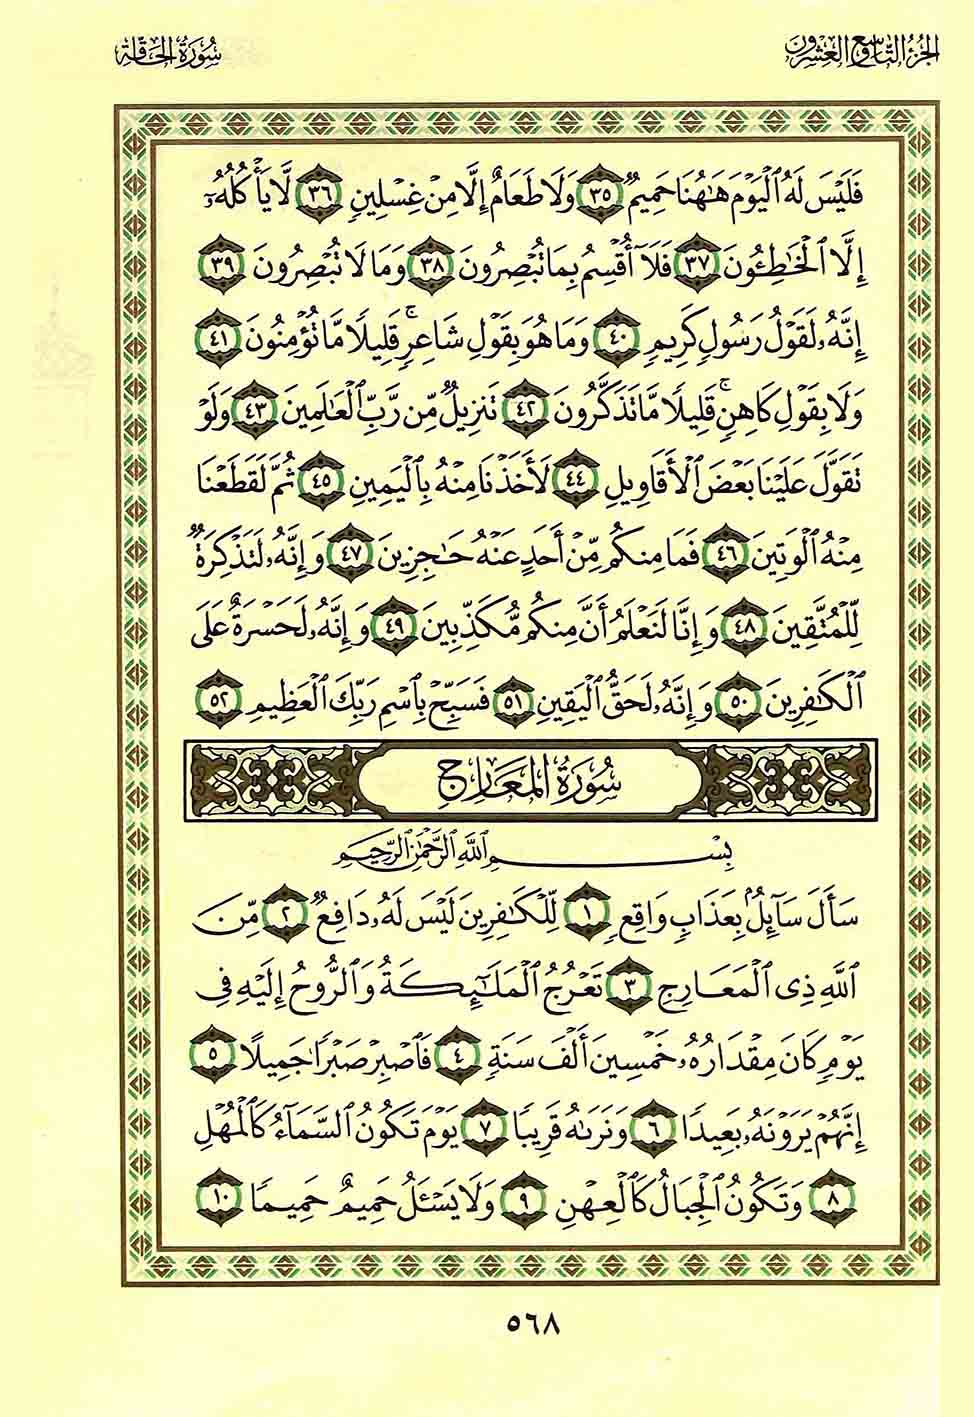 الجزء التاسع والعشرون
سورة الحاقة
فَلَيْسَ لَهُ ٱلْيَوْمَ هَٰهُنَا حَمِيمٌ ٣٥ وَلَا طَعَامٌ إِلَّا مِنْ غِسْلِينٍ ٣٦ لَّا يَأْكُلُهُۥٓ
إِلَّا ٱلْخَٰطِـُٔونَ ٣٧ فَلَآ أُقْسِمُ بِمَا تُبْصِرُونَ ٣٨ وَمَا لَا تُبْصِرُونَ ٣٩
إِنَّهُۥ لَقَوْلُ رَسُولٍ كَرِيمٍ ٤٠ وَمَا هُوَ بِقَوْلِ شَاعِرٍ ۚ قَلِيلًا مَّا تُؤْمِنُونَ ٤١
وَلَا بِقَوْلِ كَاهِنٍ ۚ قَلِيلًا مَّا تَذَكَّرُونَ ٤٢ تَنزِيلٌ مِّن رَّبِّ ٱلْعَٰلَمِينَ ٤٣ وَلَوْ
تَقَوَّلَ عَلَيْنَا بَعْضَ ٱلْأَقَاوِيلِ ٤٤ لَأَخَذْنَا مِنْهُ بِٱلْيَمِينِ ٤٥ ثُمَّ لَقَطَعْنَا
مِنْهُ ٱلْوَتِينَ ٤٦ فَمَا مِنكُم مِّنْ أَحَدٍ عَنْهُ حَٰجِزِينَ ٤٧ وَإِنَّهُۥ لَتَذْكِرَةٌ
لِّلْمُتَّقِينَ ٤٨ وَإِنَّا لَنَعْلَمُ أَنَّ مِنكُم مُّكَذِّبِينَ ٤٩ وَإِنَّهُۥ لَحَسْرَةٌ عَلَى
ٱلْكَٰفِرِينَ ٥٠ وَإِنَّهُۥ لَحَقُّ ٱلْيَقِينِ ٥١ فَسَبِّحْ بِٱسْمِ رَبِّكَ ٱلْعَظِيمِ ٥٢
سُورَةُ المَعَارِجِ
بِسْمِ ٱللَّهِ ٱلرَّحْمَٰنِ ٱلرَّحِيمِ
سَأَلَ سَآئِلٌۢ بِعَذَابٍ وَاقِعٍ ١ لِّلْكَٰفِرِينَ لَيْسَ لَهُۥ دَافِعٌ ٢ مِّنَ
ٱللَّهِ ذِى ٱلْمَعَارِجِ ٣ تَعْرُجُ ٱلْمَلَٰٓئِكَةُ وَٱلرُّوحُ إِلَيْهِ فِى
يَوْمٍ كَانَ مِقْدَارُهُۥ خَمْسِينَ أَلْفَ سَنَةٍ ٤ فَٱصْبِرْ صَبْرًا جَمِيلًا ٥
إِنَّهُمْ يَرَوْنَهُۥ بَعِيدًا ٦ وَنَرَىٰهُ قَرِيبًا ٧ يَوْمَ تَكُونُ ٱلسَّمَآءُ كَٱلْمُهْلِ
٨ وَتَكُونُ ٱلْجِبَالُ كَٱلْعِهْنِ ٩ وَلَا يَسْـَٔلُ حَمِيمٌ حَمِيمًا ١٠
٥٦٨